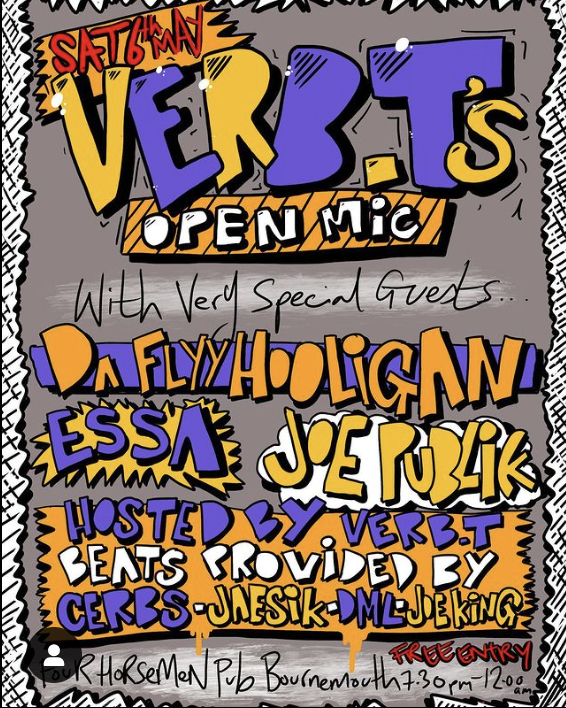 SAT 6th MAY
VERB.T's
OPEN Mic
With Very Special Guests...
DA FLYYHOOLiGAN
ESSA
JOE PUBLiK
HOSTED BY VERB.T
BEATS PROViDED BY
CERBS-JAESiK-DML-JOEKiNG
FREE ENTRY
FOUR HORSEMEN Pub Bournemouth 7.30pm-12.00am